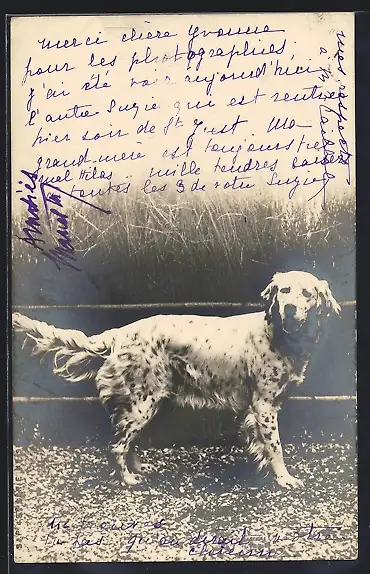 merci chère Yvonne
pour les photographies
j'ai été voir aujourd'hui
l'autre Suzie qui est rentrée
hier soir de St Just. Ma
grand mère est toujours très
mal Hélas. mille tendres baisers
à toutes les 3 de votre Suzie
mes respects
amitiés
ne trouves
tu pas qu'on dirait votre
chienne